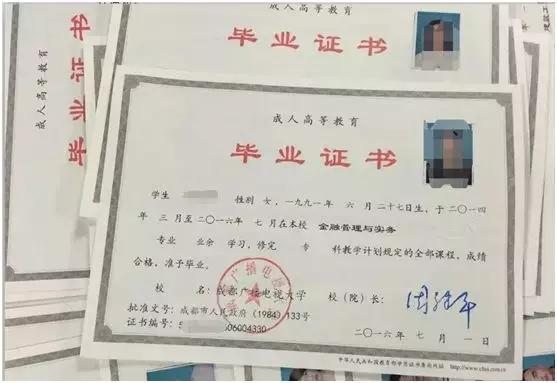 成人高等教育
毕业证书
成人高等教育
毕业证书
成人高等教育
毕业证书
学生 性别 女，一九九一年 六 月 二十七日生，于二〇一四
年 三 月至二〇一六年 七 月在本校 金融管理与实务
专业 业余 学习，修完 专 科教学计划规定的全部课程，成绩
合格，准予毕业。
校 名：成都广播电视大学 校（院）长：
批准文号：成都市人民政府（1984）133号
证书编号：5 06004330
二〇一六年 七 月 一 日
中华人民共和国教育部学历证书查询网址 http://www.chsi.com.cn